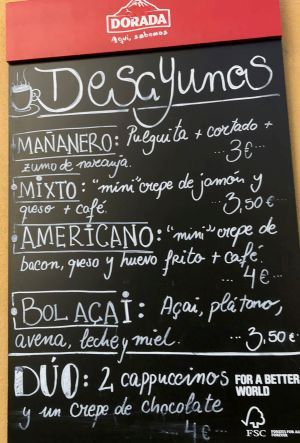 DORADA
Aquí, sabemos
Desayunos
MAÑANERO: Pulguita + cortado +
zumo de naranja. ... 3€...
MIXTO: "mini" crepe de jamon y
queso + café. ... 3,50€...
AMERICANO: "mini" crepe de
bacon, queso y huevo frito + café.
... 4€...
BOL AÇAÍ: Açai, plátano,
avena, leche y miel. ... 3,50€...
DÚO: 2 cappuccinos
y un crepe de chocolate
4€...
FOR A BETTER
WORLD
FSC